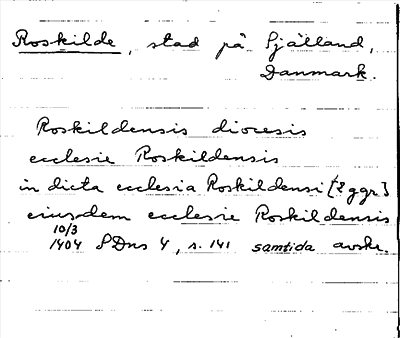 Roskilde, stad på Själland,
Danmark.
Roskildensis diocesis
ecclesie Roskildensis
in dicta ecclesia Roskildensi [2 ggr]
eiusdem ecclesie Roskildensis
10/3
1404 SDns 4, s. 141 samtida avskr.